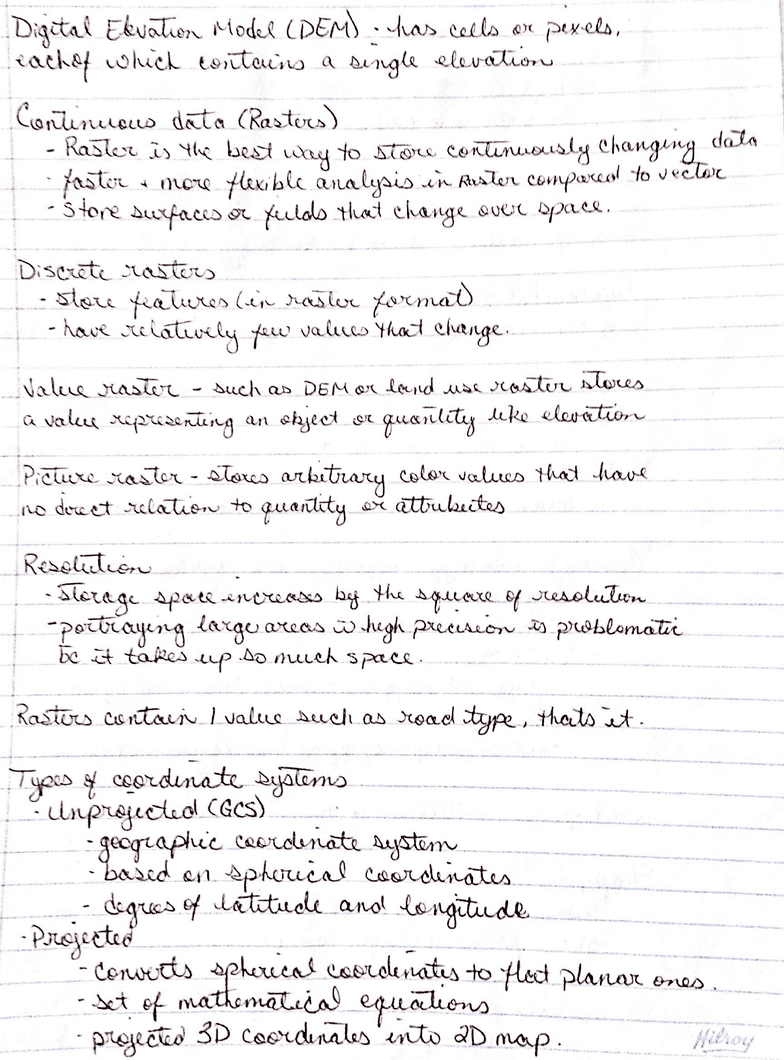 Digital Elevation Model (DEM) - has cells or pixels,
each of which contains a single elevation
Continuous data (Rasters)
- Raster is the best way to store continuously changing data
- faster + more flexible analysis in Raster compared to vector
- Store surfaces or fields that change over space.
Discrete rasters
- store features (in raster format)
- have relatively few values that change.
Value raster - such as DEM or land use raster stores
a value representing an object or quantity like elevation
Picture raster - stores arbitrary color values that have
no direct relation to quantity or attributes
Resolution
- storage space increases by the square of resolution
- portraying large areas w high precision is problematic
bc it takes up so much space.
Rasters contain 1 value such as road type, thats it.
Types of coordinate systems
- Unprojected (GCS)
- geographic coordinate system
- based on spherical coordinates
- degrees of latitude and longitude
- Projected
- converts spherical coordinates to flat planar ones.
- set of mathematical equations
- projected 3D coordinates into 2D map.
Hilroy